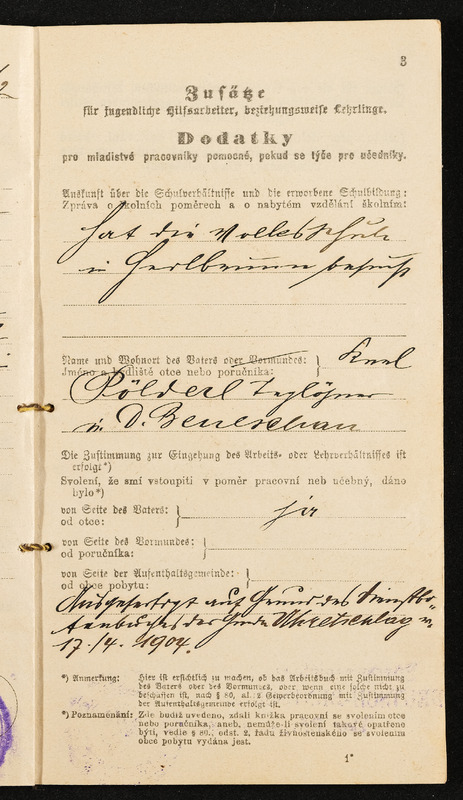 3
Zusätze
für jugendliche Hilfsarbeiter, beziehungsweise Lehrlinge.
Dodatky
pro mladistvé pracovníky pomocné, pokud se týče pro učedníky.
Auskunft über die Schulverhältnisse und die erworbene Schulbildung:
Zpráva o školních poměrech a o nabytém vzdělání školním:
hat die Volksschule
in Heilbrunn besucht
Name und Wohnort des Vaters oder Vormundes:
Jméno a bydliště otce nebo poručníka:
Karl
Pölderl Taglöhner
in D. Beneschau
Die Zustimmung zur Eingehung des Arbeits- oder Lehrverhältnisses ist
erfolgt*)
Svolení, že smí vstoupiti v poměr pracovní neb učebný, dáno
bylo*)
von Seite des Vaters:
od otce:
ja
von Seite des Vormundes:
od poručníka:
von Seite der Aufenthaltsgemeinde:
od obce pobytu:
Ausgefertigt auf Grund des Dienstbo-
tenbuches der Gmde Uhretschlag v.
17./4. 1904.
*) Anmerkung: Hier ist ersichtlich zu machen, ob das Arbeitsbuch mit Zustimmung
des Vaters oder des Vormundes, oder wenn eine solche nicht zu
beschaffen ist, nach § 80, al. 2 Gewerbeordnung mit Zustimmung
der Aufenthaltsgemeinde erfolgt ist.
*) Poznamenání: Zde budiž uvedeno, zdali knížka pracovní se svolením otce
nebo poručníka, aneb, nemůže-li svolení takové opatřeno
býti, vedle § 80., odst. 2. řádu živnostenského se svolením
obce pobytu vydána jest.
1*